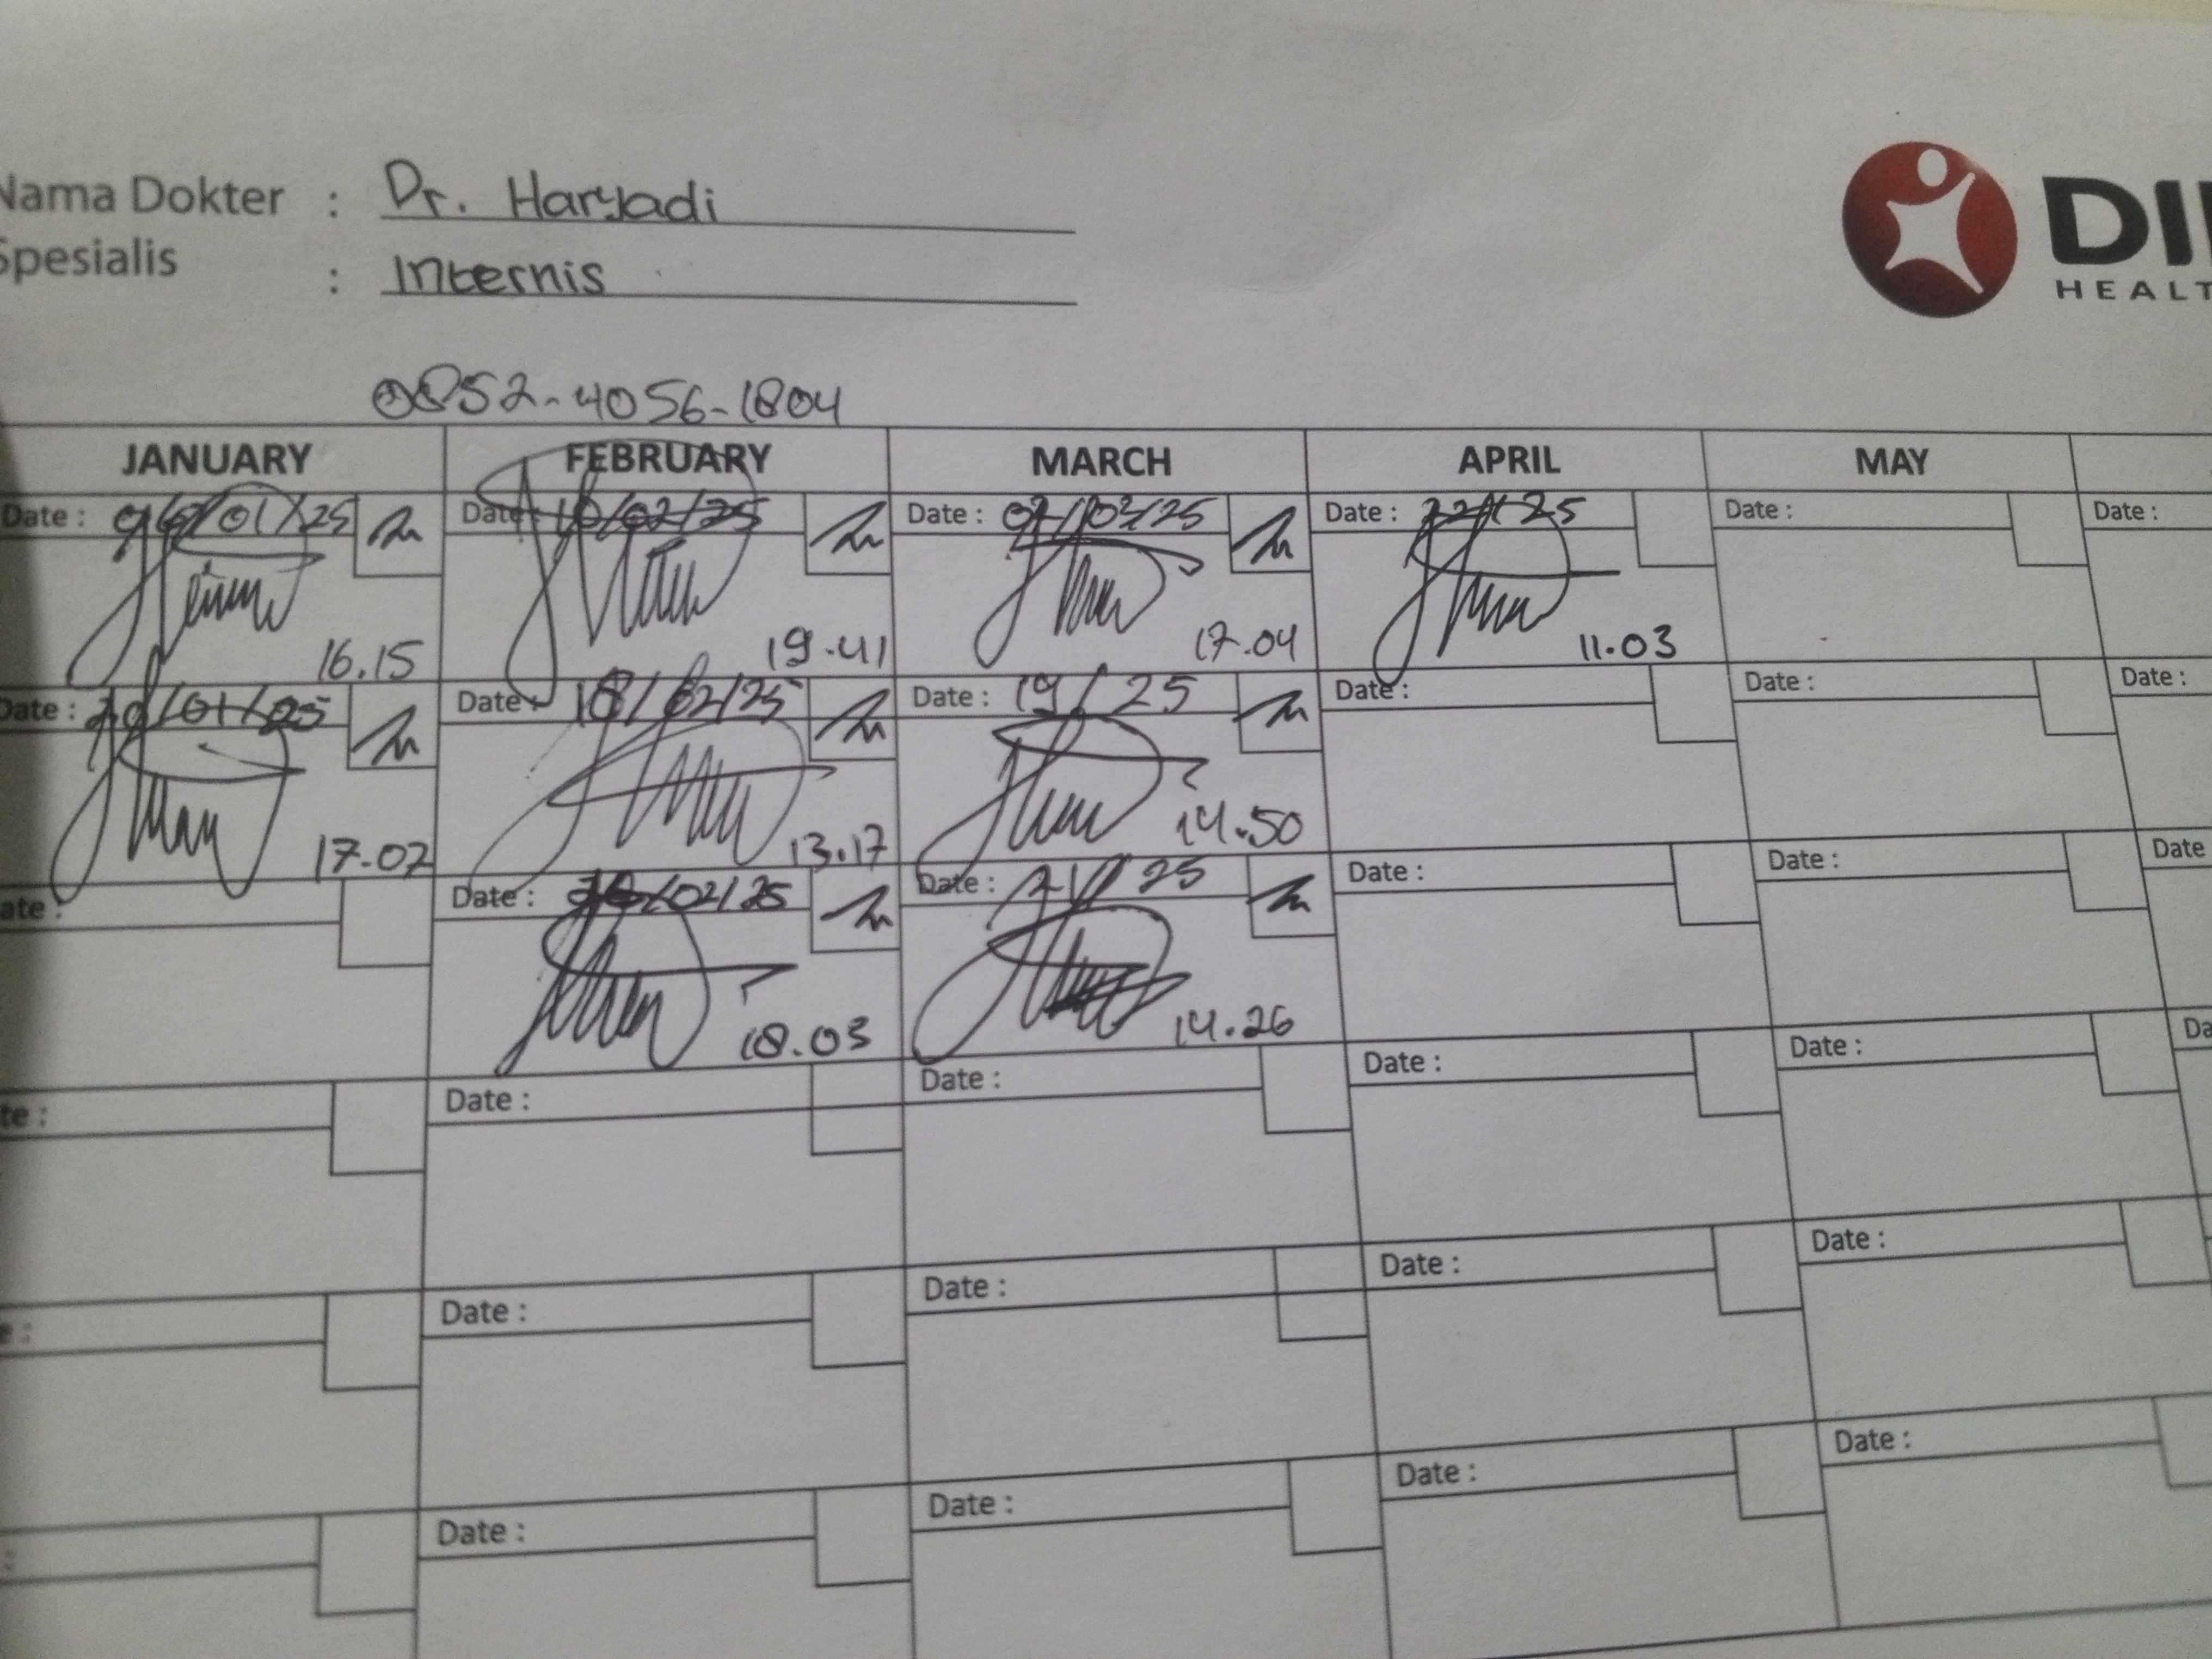 Nama Dokter : Dr. Haryadi
Spesialis : Internis
0852-4056-1804
DI
HEALT
JANUARY FEBRUARY MARCH APRIL MAY
Date : 06/01/25 Date : 10/02/25 Date : 07/03/25 Date : 25 Date : Date :
16.15 19.41 17.04 11.03
Date : /01/25 Date : 18/02/25 Date : 19/ 25 Date : Date : Date :
17.07 13.17 14.50
ate : Date : /02/25 Date : 25 Date : Date : Date
18.03 14.26
te : Date : Date : Date : Date : Da
e : Date : Date : Date : Date :
: Date : Date : Date : Date :